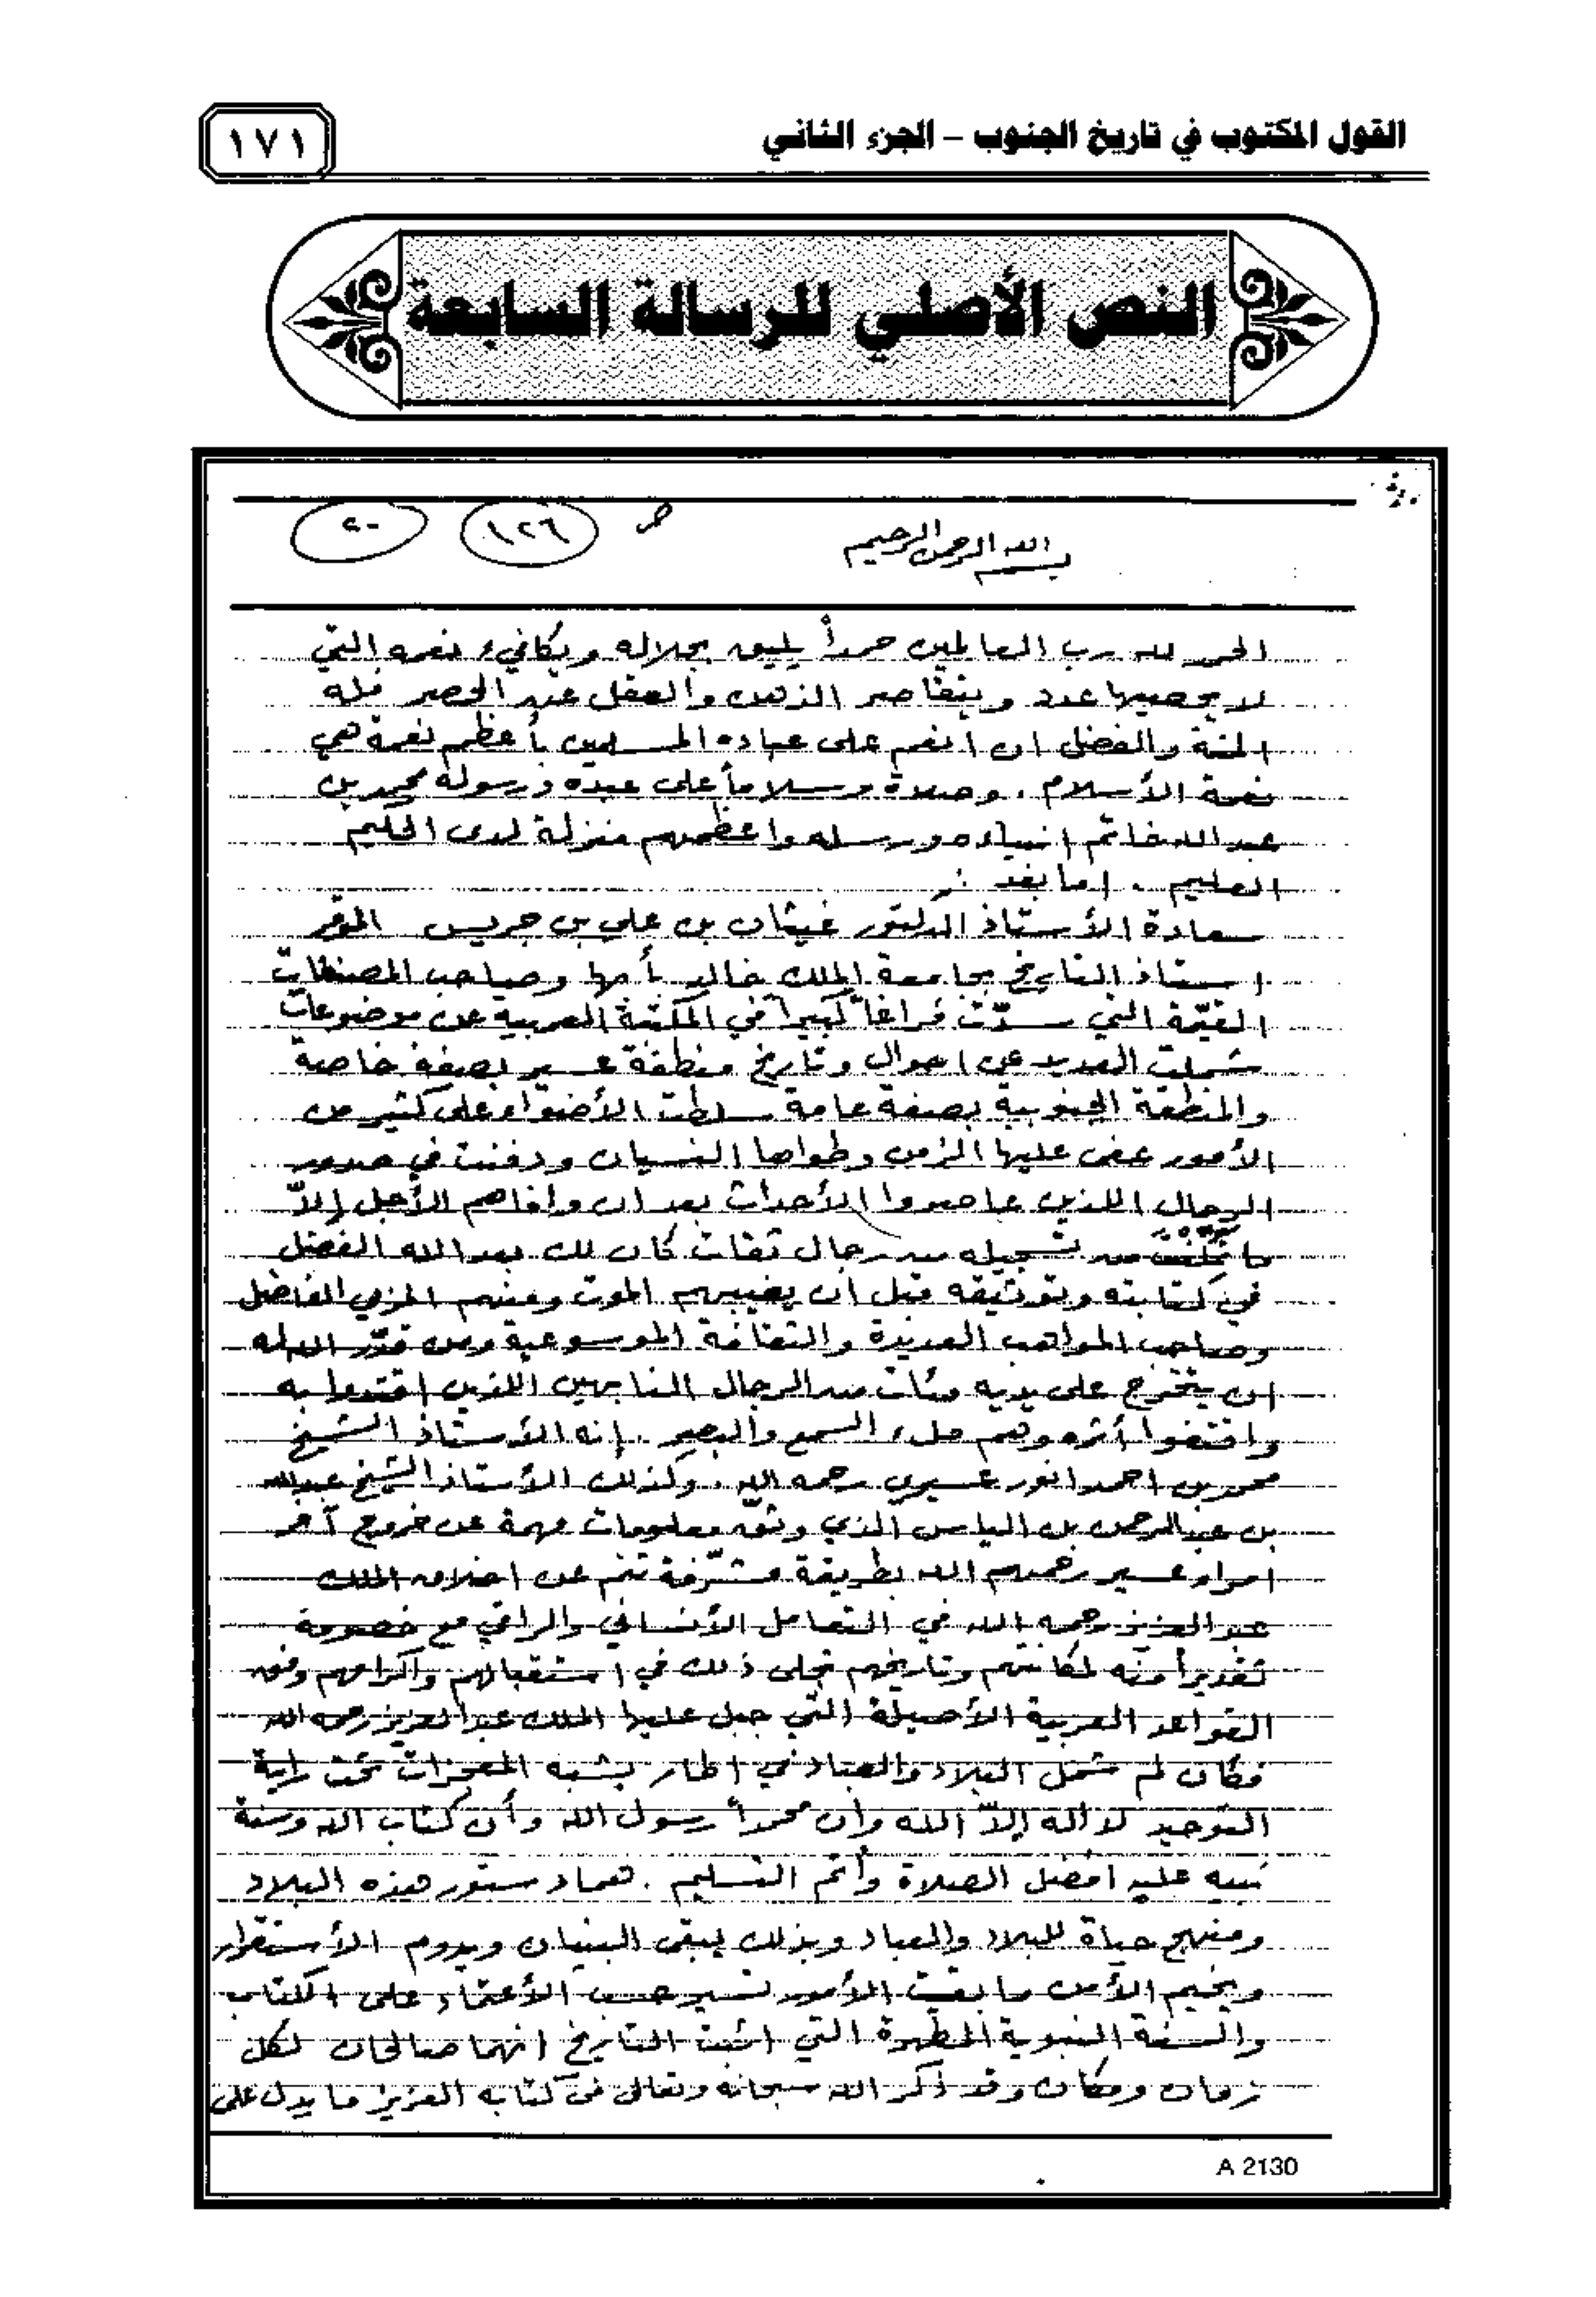 القول المكتوب في تاريخ الجنوب – الجزء الثاني
١٧١
النص الأصلي للرسالة السابعة
بسم الله الرحمن الرحيم
ص ١٢٦
الحمد لله رب العالمين حمداً يليق بجلاله ويكافيء نعمه التي
لا يحصيها عدد ويتقاصر الذهن والعقل عند الحصر فله
المنة والفضل ان انعم على عباده المسلمين بأعظم نعمة هي
نعمة الأسلام . وصلاة وسلاماً على عبده ورسوله محمد بن
عبد الله خاتم انبياءه ورسله واعظمهم منزلة لدى الحليم
العليم . اما بعد :
سعادة الأستاذ الدكتور غيثان بن علي بن جريس الموقر
استاذ التاريخ بجامعة الملك خالد بأبها وصاحب المصنفات
القيّمة التي سدّت فراغاً كبيراً في المكتبة العربيه عن موضوعات
شملت العديد عن احوال وتاريخ منطقة عسير بصفة خاصة
والمنطقة الجنوبية بصفة عامة سلطت الأضواء على كثير من
الأمور عفى عليها الزمن وطواها النسيان ودفنت في صدور
الرجال اللذين عاصروا الأحداث بعد ان وافاهم الأجل إلاّ
ما من تسجيله من رجال ثقات كان لك بعد الله الفضل
في كتابته وتوثيقه قبل ان يغيبهم الموت ومنهم المربي الفاضل
وصاحب المواهب العديدة والثقافة الموسوعية ومن قدّر الله له
ان يتخرج على يديه مئات من الرجال النابهين اللذين اقتدوا به
واقتفوا أثره وهم ملء السمع والبصر . إنه الأستاذ الشيخ
محمد بن احمد انور عسيري رحمه الله . وكذلك الأستاذ الشيخ عبدالله
بن عبدالرحمن بن الياس الذي وثق معلومات مهمة عن خروج آخر
امراء عسير رحمهم الله بطريقة مشرّفة تنم عن اخلاق الملك
عبد العزيز رحمه الله في التعامل الأنساني والراقي مع خصومه
تقديراً منه لمكانتهم وتاريخهم تجلى ذلك في استقبالهم واكرامهم وفق
القواعد العربية الأصيلة التي جبل عليها الملك عبد العزيز رحمه الله
فكان لم شمل البلاد والعباد في اطار يشبه المعجزات تحت راية
التوحيد لا اله إلاّ الله وان محمداً رسول الله وأن كتاب الله وسنة
نبيه عليه افضل الصلاة وأتم التسليم . هما دستور هذه البلاد
ومنهج حياة للبلاد والعباد وبذلك يبقى البنيان ويدوم الأستقرار
ويخيم الأمن ما بقيت الأمور تسير حسب الأعتماد على الكتاب
والسنة النبوية المطهرة التي اثبت التاريخ انهما صالحان لكل
زمان ومكان وقد ذكر الله سبحانه وتعالى في كتابه العزيز ما يدل على
A 2130